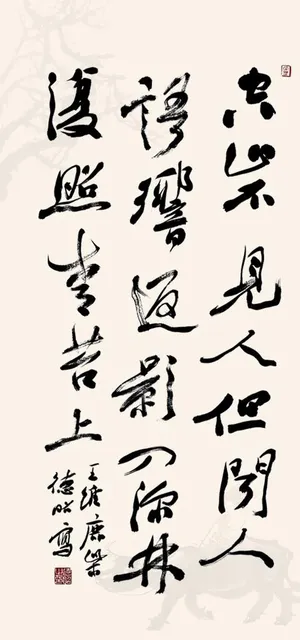 空山不見人但聞人
語響返影入深林
復照青苔上
王維鹿柴
德寫